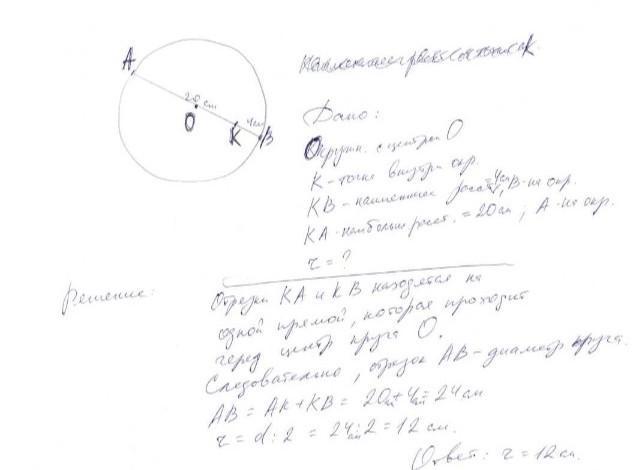 A
20 см
O
4см
K
B
Дано:
Окружн. с центром O
K - точка внутри окр.
KB - наименьшее расст. = 4см, B - на окр.
KA - наибольш расст. = 20 см; A - на окр.
r = ?
Решение:
Отрезки KA и KB находятся на
одной прямой, которая проходит
через центр круга O.
Следовательно, отрезок AB - диаметр круга.
AB = AK + KB = 20см + 4см = 24 см
r = d : 2 = 24см : 2 = 12 см.
Ответ: r = 12 см.